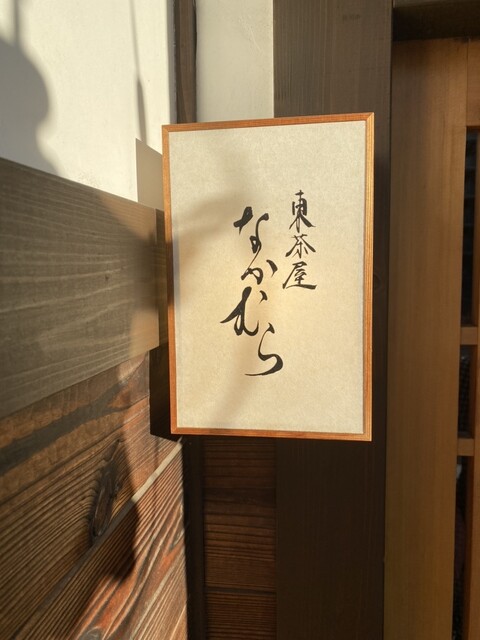 東茶屋
なかむら